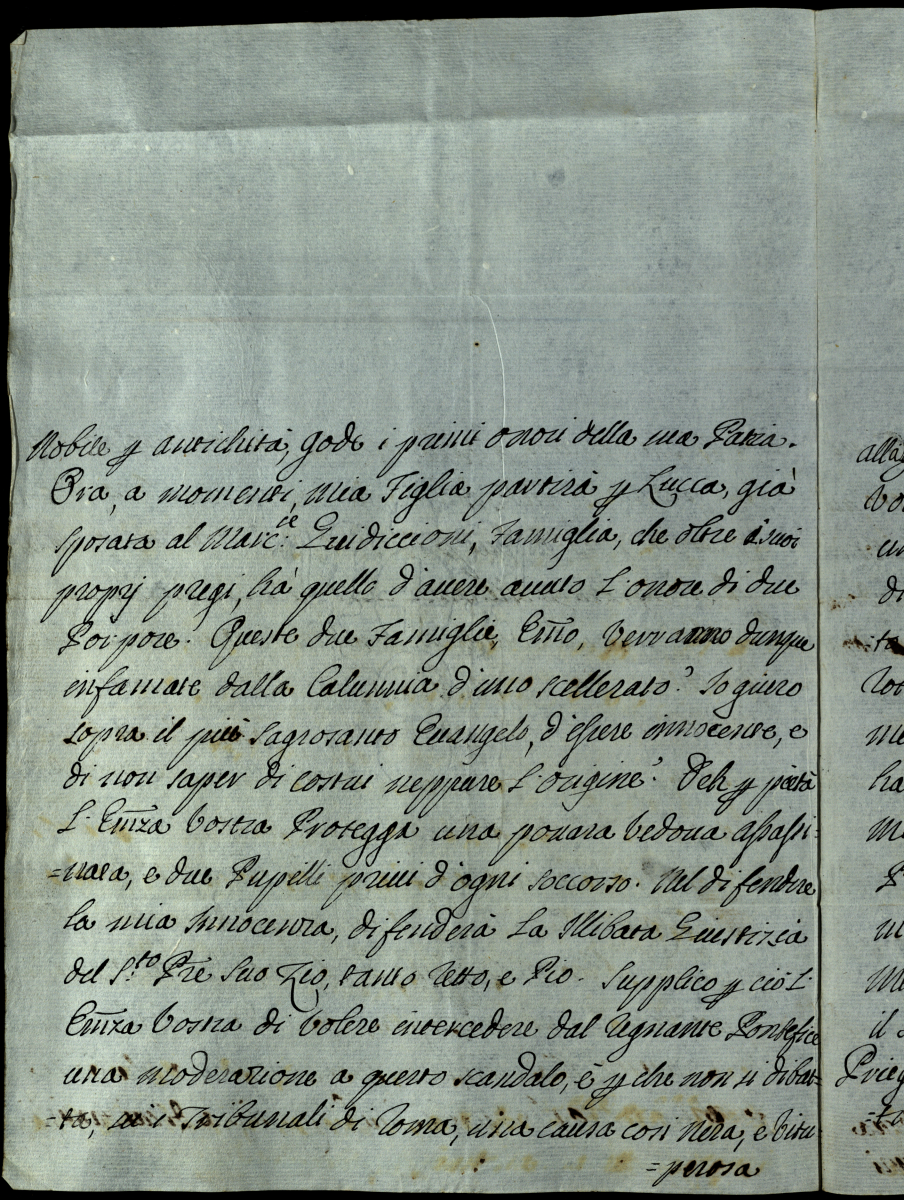 Nobile p antichità, gode i primi onori della sua Patria.
Ora, a momenti, Mia Figlia partirà p Lucca, già
sposata al Marc:se Guidiccioni, Famiglia, che oltre i suoi
proprj pregi, hà quello d'avere avuto l'onore di due
Porpore. Queste due Famiglie, Emo, verranno dunque
infamate dalla Calunnia d'uno scellerato? Io giuro
sopra il più Sagrosanto Evangelo, d'essere innocente, e
di non saper di costui neppure l'origine? Deh p pietà
L'Emza Vostra Protegga una povara Vedova assassi=
=nata, e due Pupilli privi d'ogni soccorso. Nel difendere
la mia Innocenza, difenderà la Illibata Giustizia
del S.to Pre Suo Zio, tanto Retto, e Pio. Supplico p ciò l'
Emza Vostra di volere intercedere dal Regnante Pontefice
una moderazione a questo scandalo, e p che non si dibat=
=ta, ai Tribunali di Roma, una causa così nera, e vitu=
=perosa